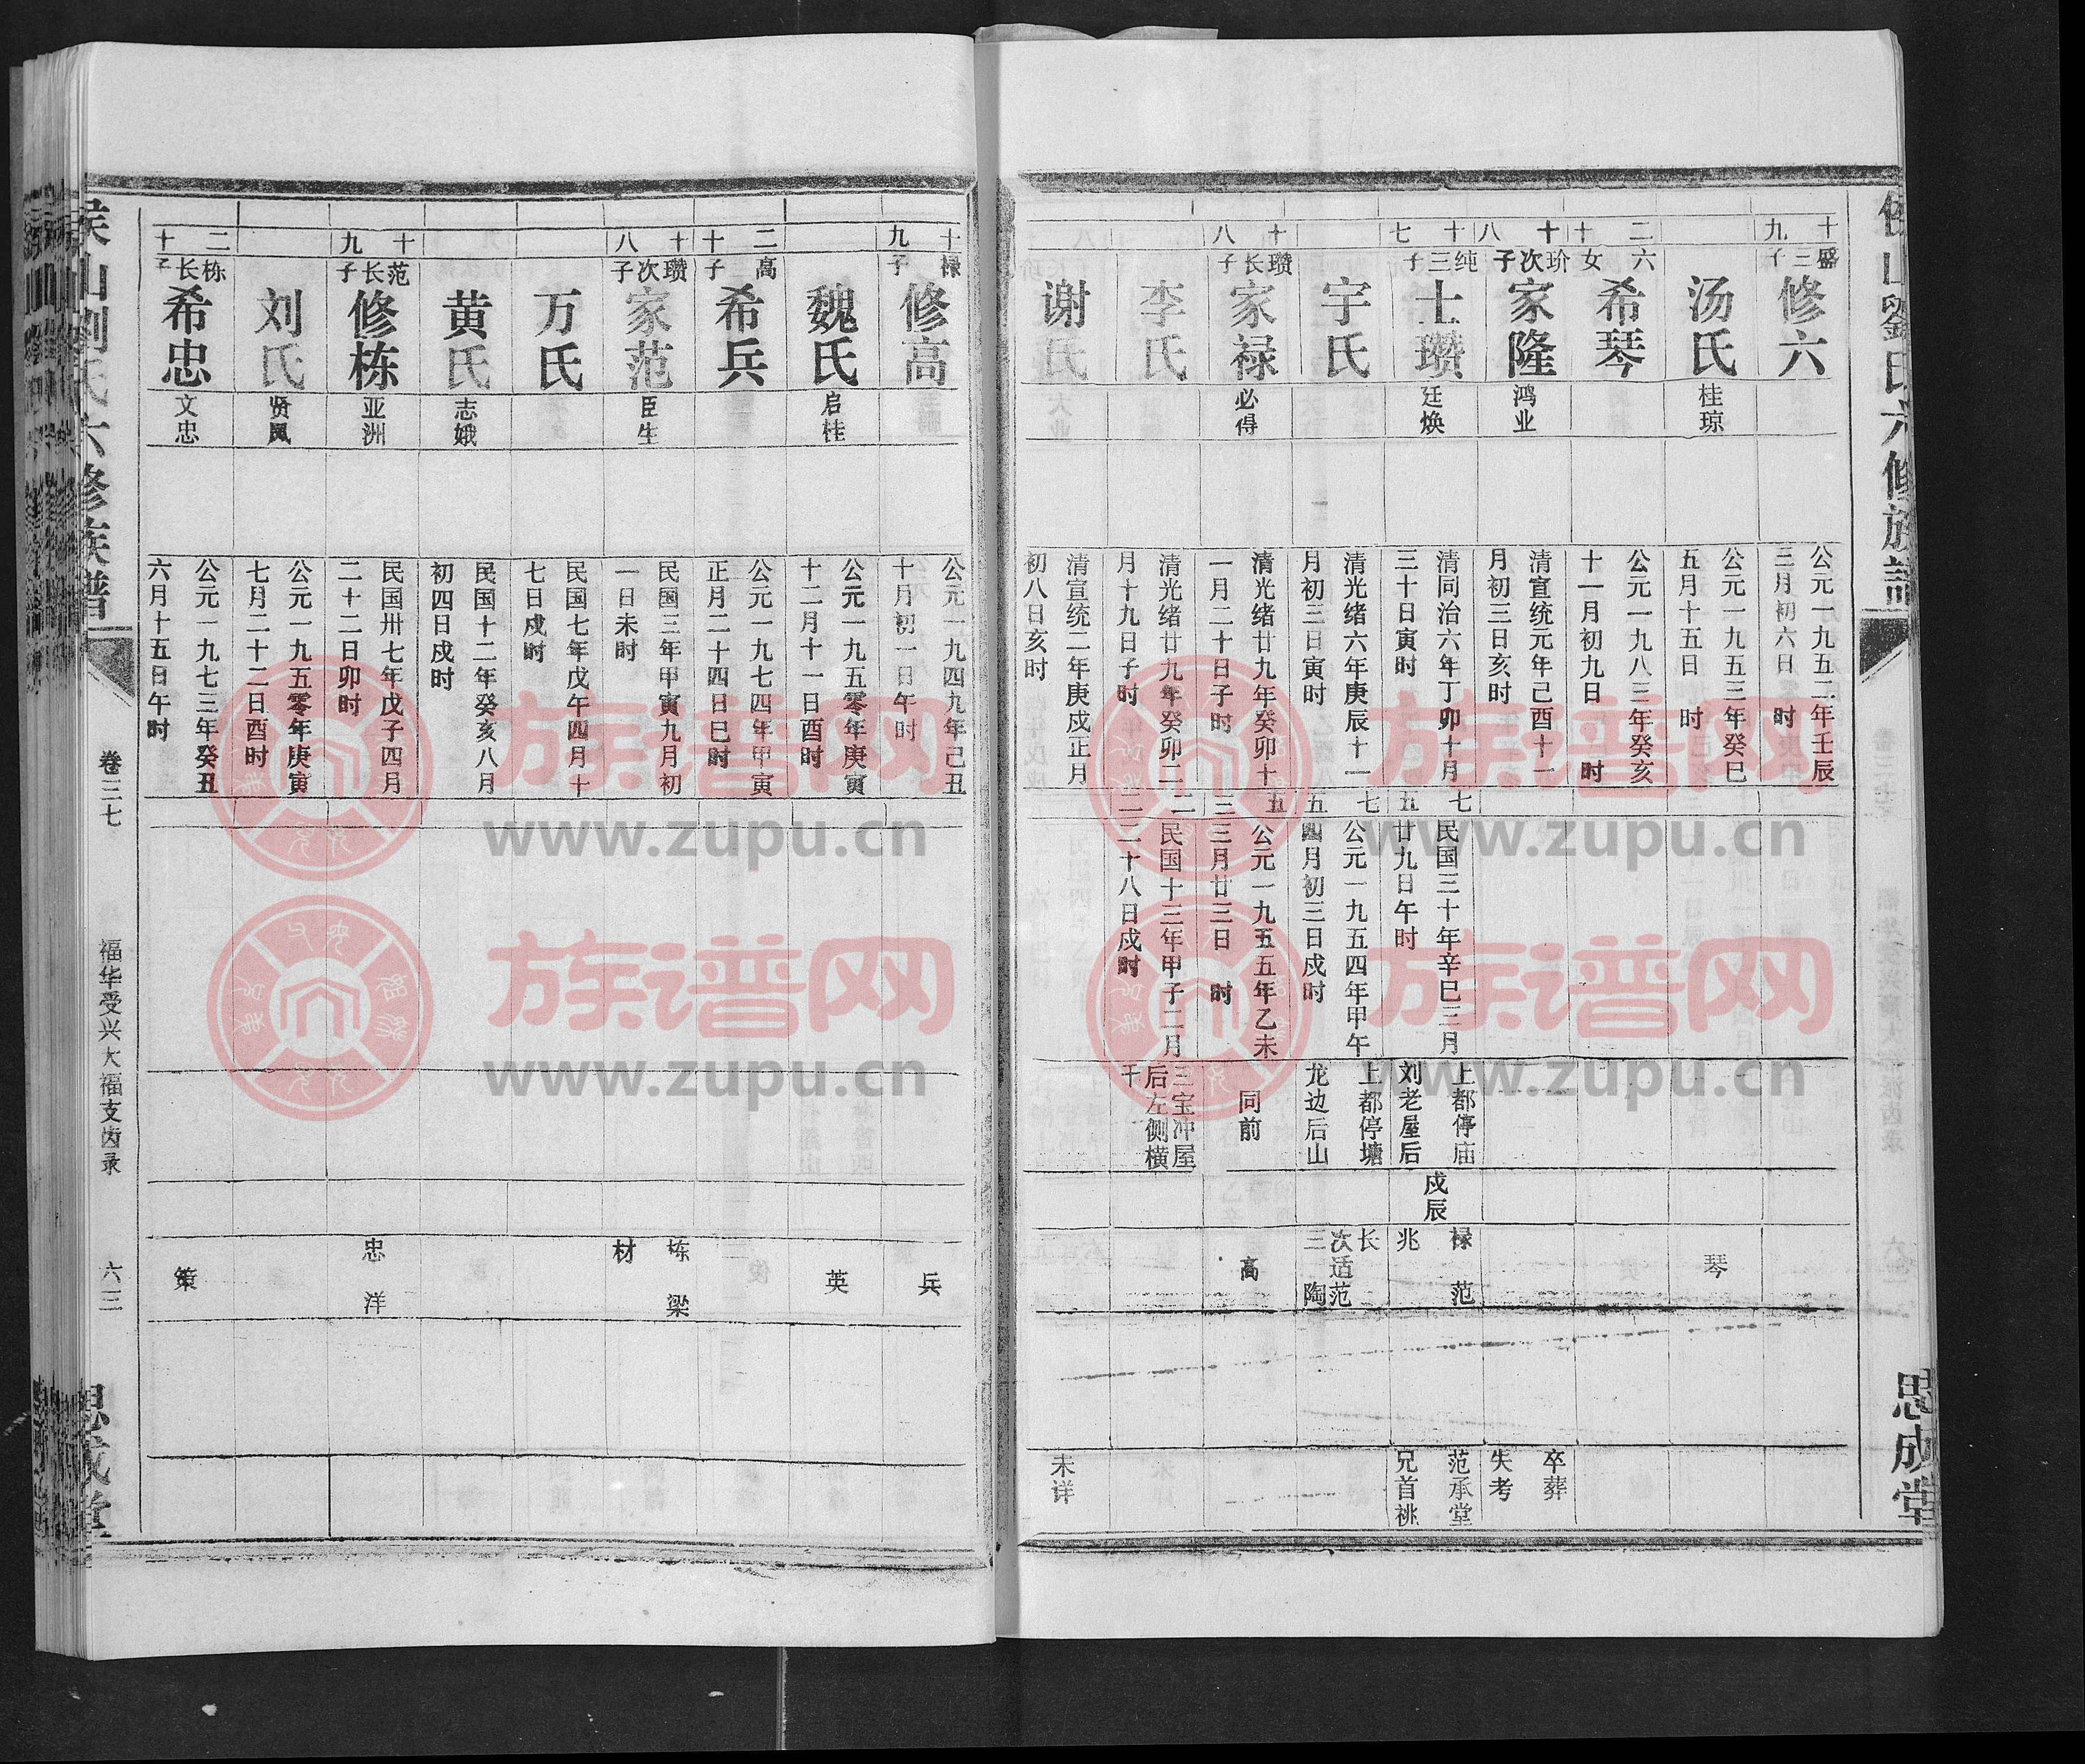 山劉氏六修族譜
思成堂
十九
盛三子
修六
公元一九五二年壬辰
三月初六日 时
汤氏
桂琼
公元一九五三年癸巳
五月十五日 时
琴
二十
六女
希琴
公元一九八三年癸亥
十一月初九日 时
十八
玠次子
家隆
鸿业
清宣统元年己酉十一
月初三日亥时
卒葬
失考
十七
纯三子
士瓒
廷焕
清同治六年丁卯十月
三十日寅时
七
五
民国三十年辛巳三月
廿九日午时
上都停庙
刘老屋后
戍辰
禄 范
兆
范承堂
兄首祧
宇氏
清光绪六年庚辰十一
月初三日寅时
七
五
公元一九五四年甲午
四月初三日戍时
上都停塘
龙边后山
长
次适范
三 陶
十八
瓒长子
家禄
必得
清光绪廿九年癸卯十
一月二十日子时
五
三
公元一九五五年乙未
三月廿三日 时
同前
高
李氏
清光绪廿九年癸卯二
月十九日子时
二
二
民国十三年甲子二月
二十八日戍时
三宝冲屋
后左侧横
干
谢氏
清宣统二年庚戍正月
初八日亥时
未详
十九
禄子
修高
公元一九四九年己丑
十月初一日午时
兵
魏氏
启桂
公元一九五零年庚寅
十二月十一日酉时
英
二十
高子
希兵
公元一九七四年甲寅
正月二十四日巳时
十八
瓒次子
家范
臣生
民国三年甲寅九月初
一日未时
栋 梁
材
万氏
民国七年戊午四月十
七日戍时
黄氏
志娥
民国十二年癸亥八月
初四日戍时
十九
范长子
修栋
亚洲
民国卅七年戊子四月
二十二日卯时
忠 洋
刘氏
贤凤
公元一九五零年庚寅
七月二十二日酉时
二十
栋长子
希忠
文忠
公元一九七三年癸丑
六月十五日午时
策
侯山劉氏六修族譜
卷三七
福华受兴大福支齿录
六三
思成堂
族谱网
www.zupu.cn
族谱网
www.zupu.cn
族谱网
www.zupu.cn
族谱网
www.zupu.cn